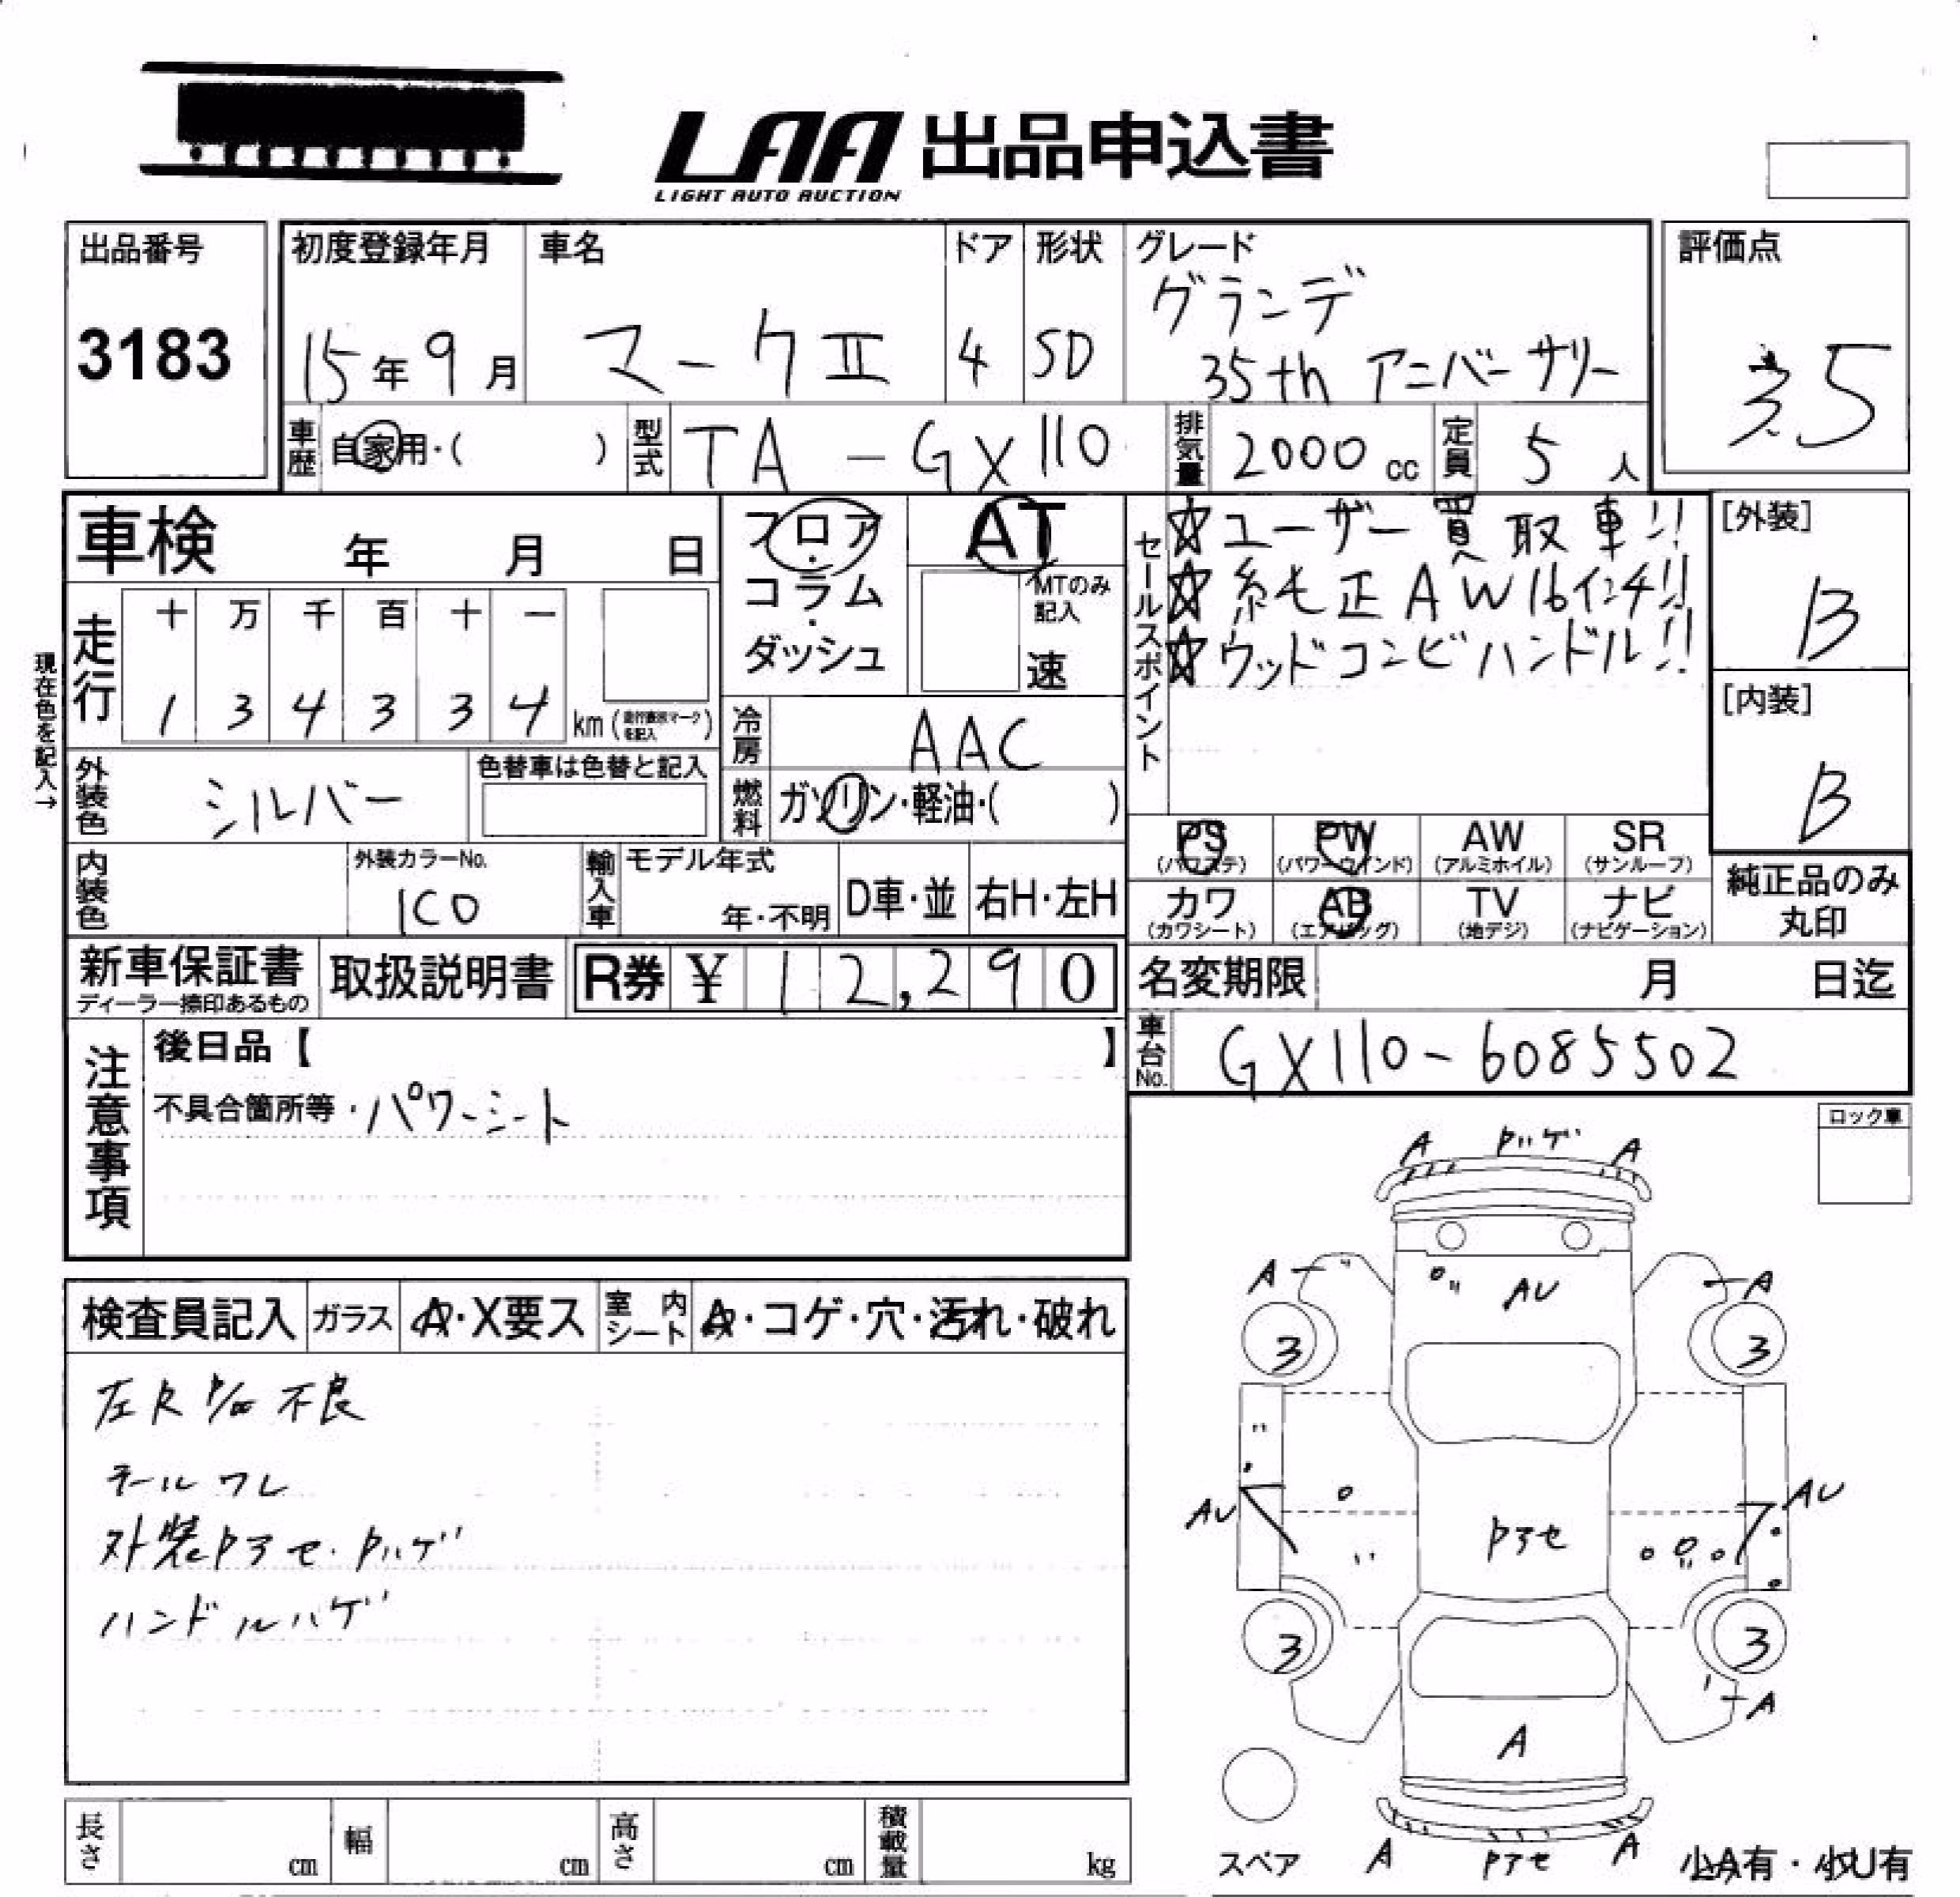 LAA 出品申込書
LIGHT AUTO AUCTION
出品番号
3183
初度登録年月
15年9月
車名
マークⅡ
ドア
4
形状
SD
グレード
グランデ
35th アニバーサリー
評価点
3.5
車歴
自家用・( )
型式
TA-GX110
排気量
2000cc
定員
5人
車検 年 月 日
フロア・
コラム・
ダッシュ
AT
MTのみ
記入
速
セールスポイント
☆ユーザー買取車!!
☆純正AW16インチ!!
☆ウッドコンビハンドル!!
[外装]
B
[内装]
B
現在色を記入→
走行
十 万 千 百 十 一
1 3 4 3 3 4 km
冷房
AAC
外装色
シルバー
色替車は色替と記入
燃料
ガソリン・軽油・( )
PS
(パワステ)
PW
(パワーウインド)
AW
(アルミホイル)
SR
(サンルーフ)
カワ
(カワシート)
AB
(エアバッグ)
TV
(地デジ)
ナビ
(ナビゲーション)
純正品のみ
丸印
内装色
外装カラーNo.
1C0
輸入車
モデル年式
年・不明
D車・並
右H・左H
新車保証書
ディーラー捺印あるもの
取扱説明書
R券 ¥12,290
名変期限 月 日迄
車台No.
GX110-6085502
注意事項
後日品【 】
不具合箇所等・パワーシート
ロック車
検査員記入
ガラス
A・X要ス
室内シート
A・コゲ・穴・汚れ・破れ
左R P/W 不良
テールワレ
外装Pアセ・Pハゲ
ハンドルハゲ
A Pハゲ A
A AU A
3 3
AU AU
Pアセ
3 3
A
A
スペア
A Pアセ A
小A有・小U有
長さ cm
幅 cm
高さ cm
積載量 kg